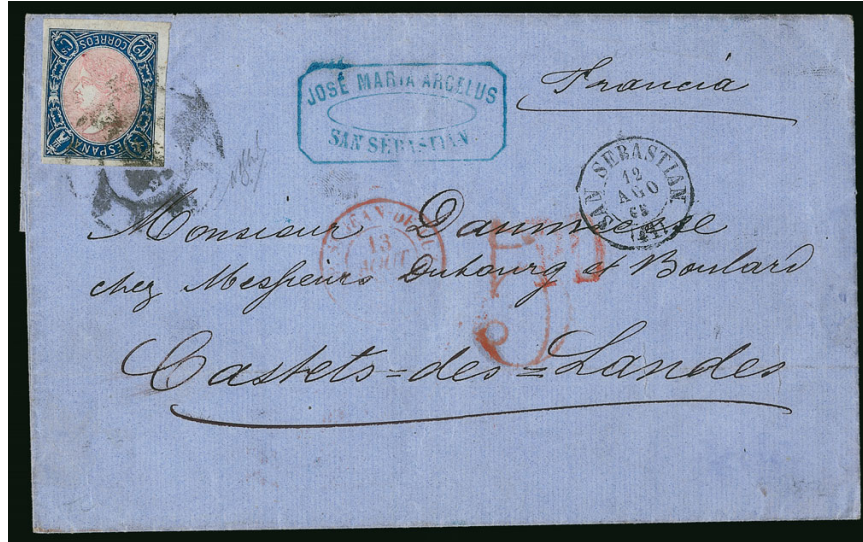 CORREOS
12 Cs
ESPAÑA
JOSÉ MARIA ARCELUS
SAN SEBASTIAN
Francia
SAN SEBASTIAN
12
AGO
65
Monsieur
13
AOUT
chez Messieurs Dubourg et Boulard
Castets=des=Landes